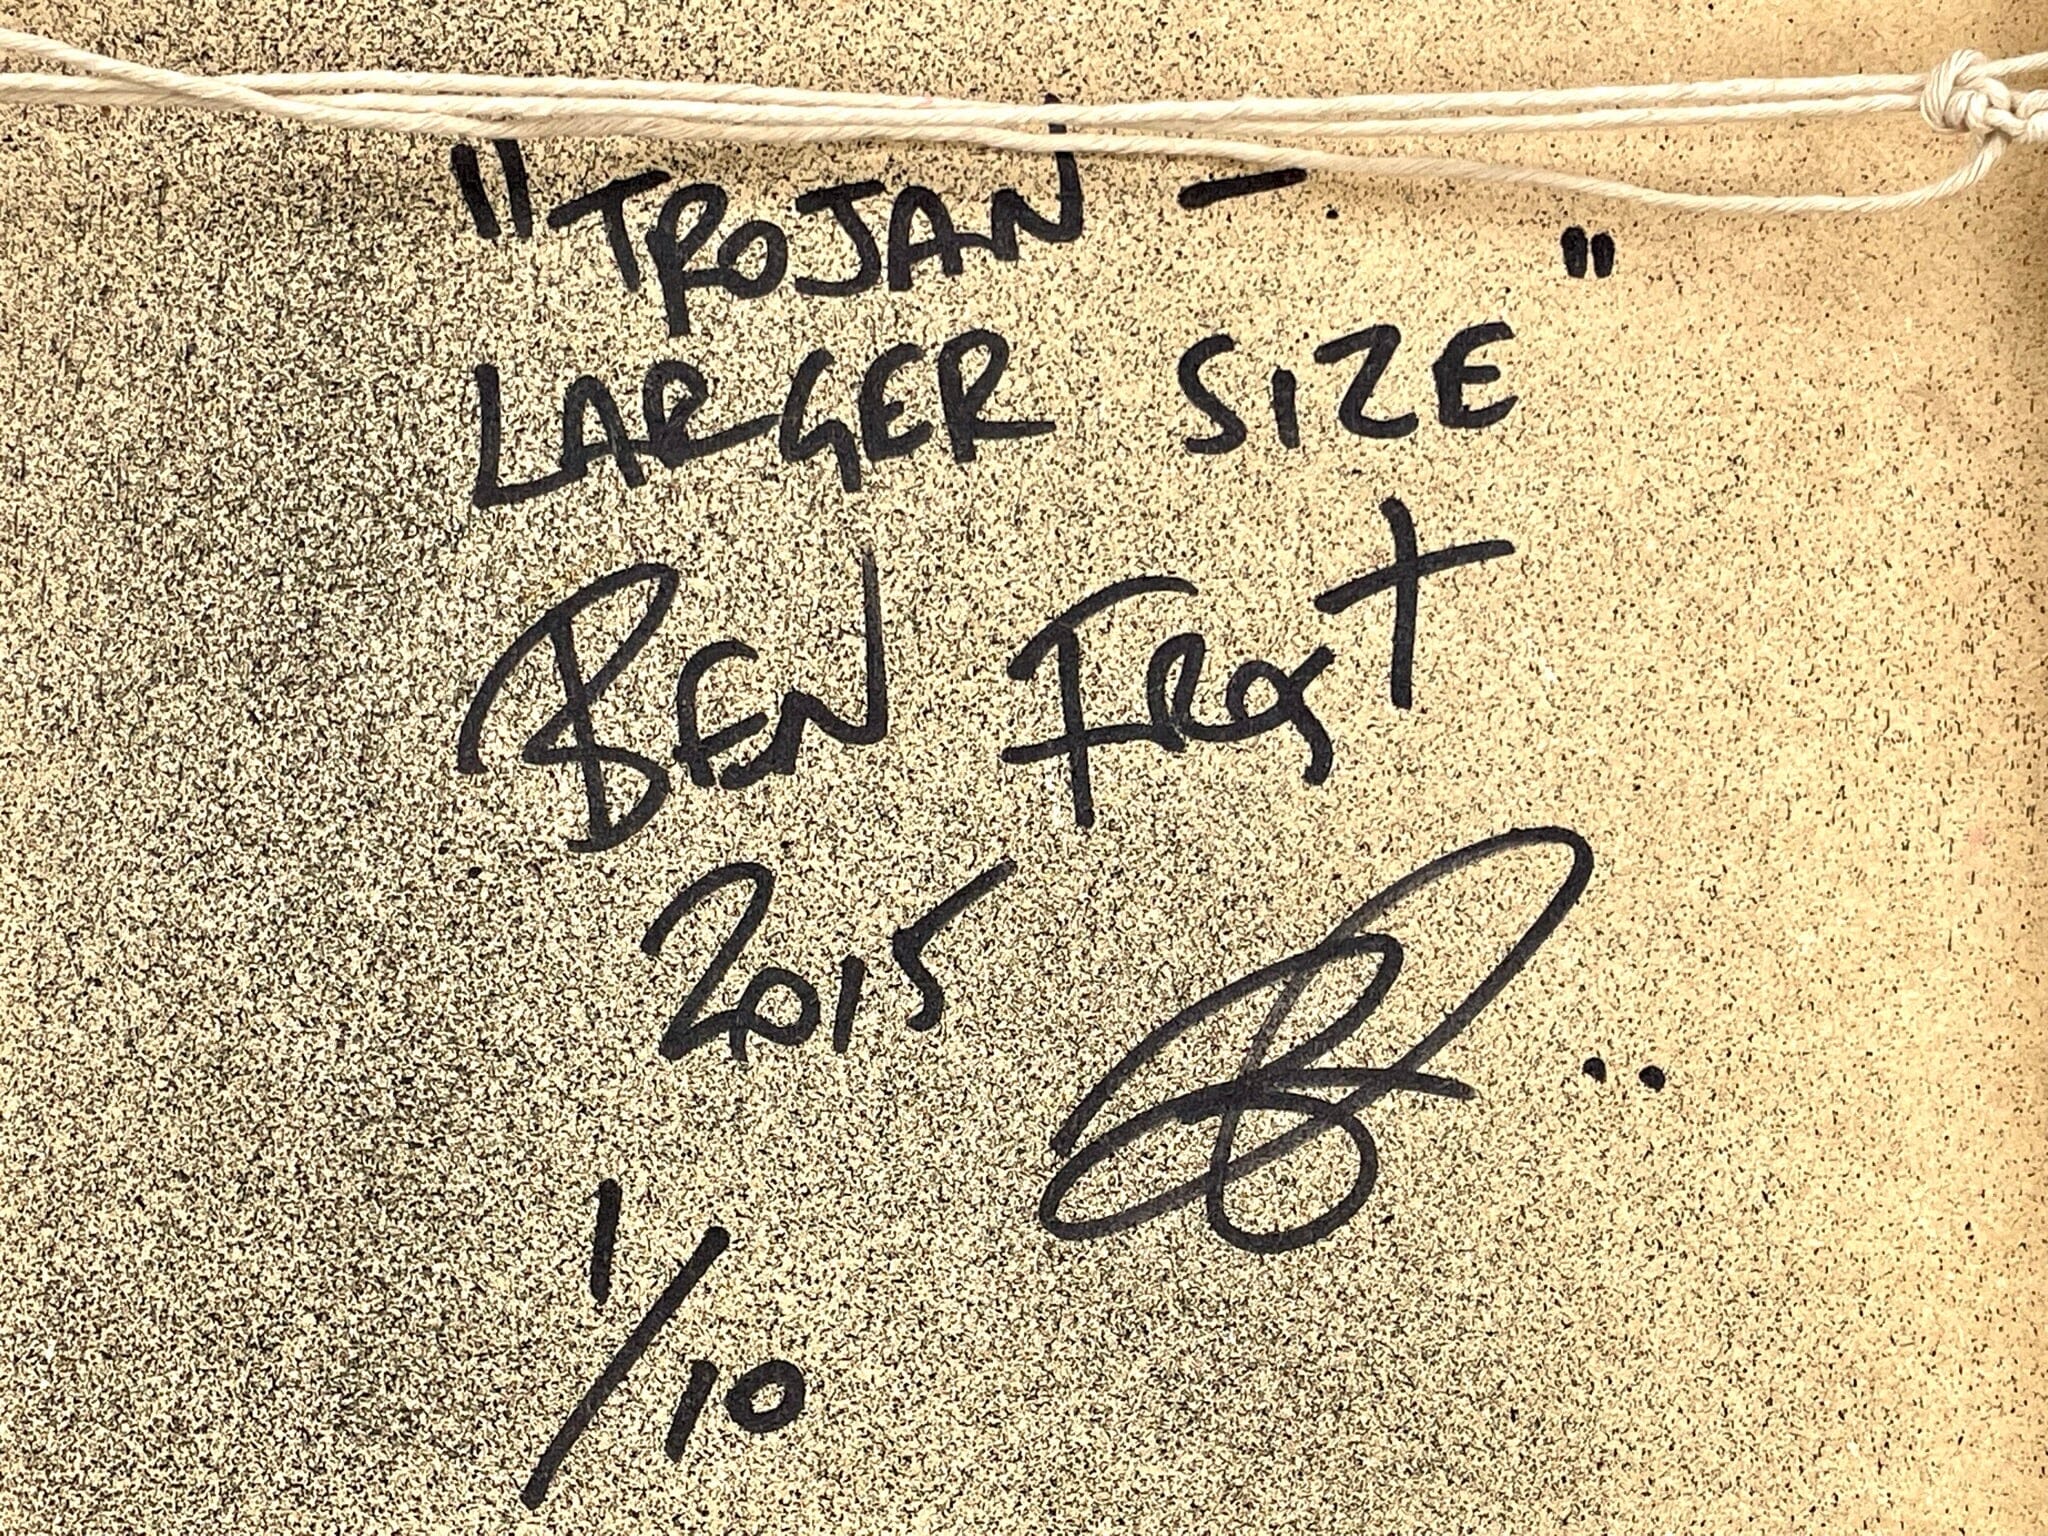 "TROJAN -
LARGER SIZE"
BEN FROST
2015
1/10